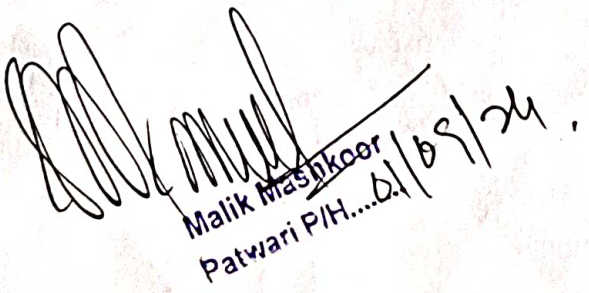 Malik Mashkoor
Patwari P/H.......
01/09/24.